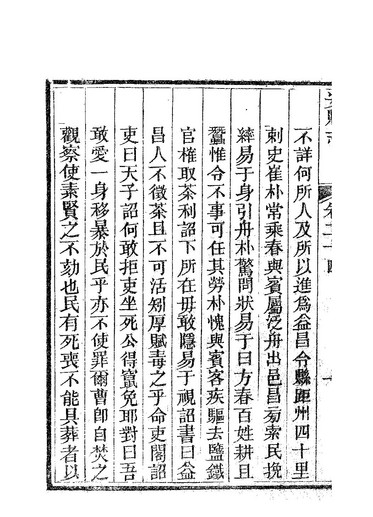 不詳何所人及所以進爲益昌令縣距州四十里
刺史崔朴常乘春與賓屬泛舟出邑昌旁索民挽
繂易于身引舟朴驚問狀易于曰方春百姓耕且
蠶惟令不事可任其勞朴愧與賓客疾驅去鹽鐵
官榷取茶利詔下所在毋敢隱易于視詔書曰益
昌人不徵茶且不可活矧厚賦毒之乎命吏閣詔
吏曰天子詔何敢拒吏坐死公得竄免耶對曰吾
敢愛一身移暴於民乎亦不使罪爾曹卽自焚之
觀察使素賢之不劾也民有死喪不能具葬者以